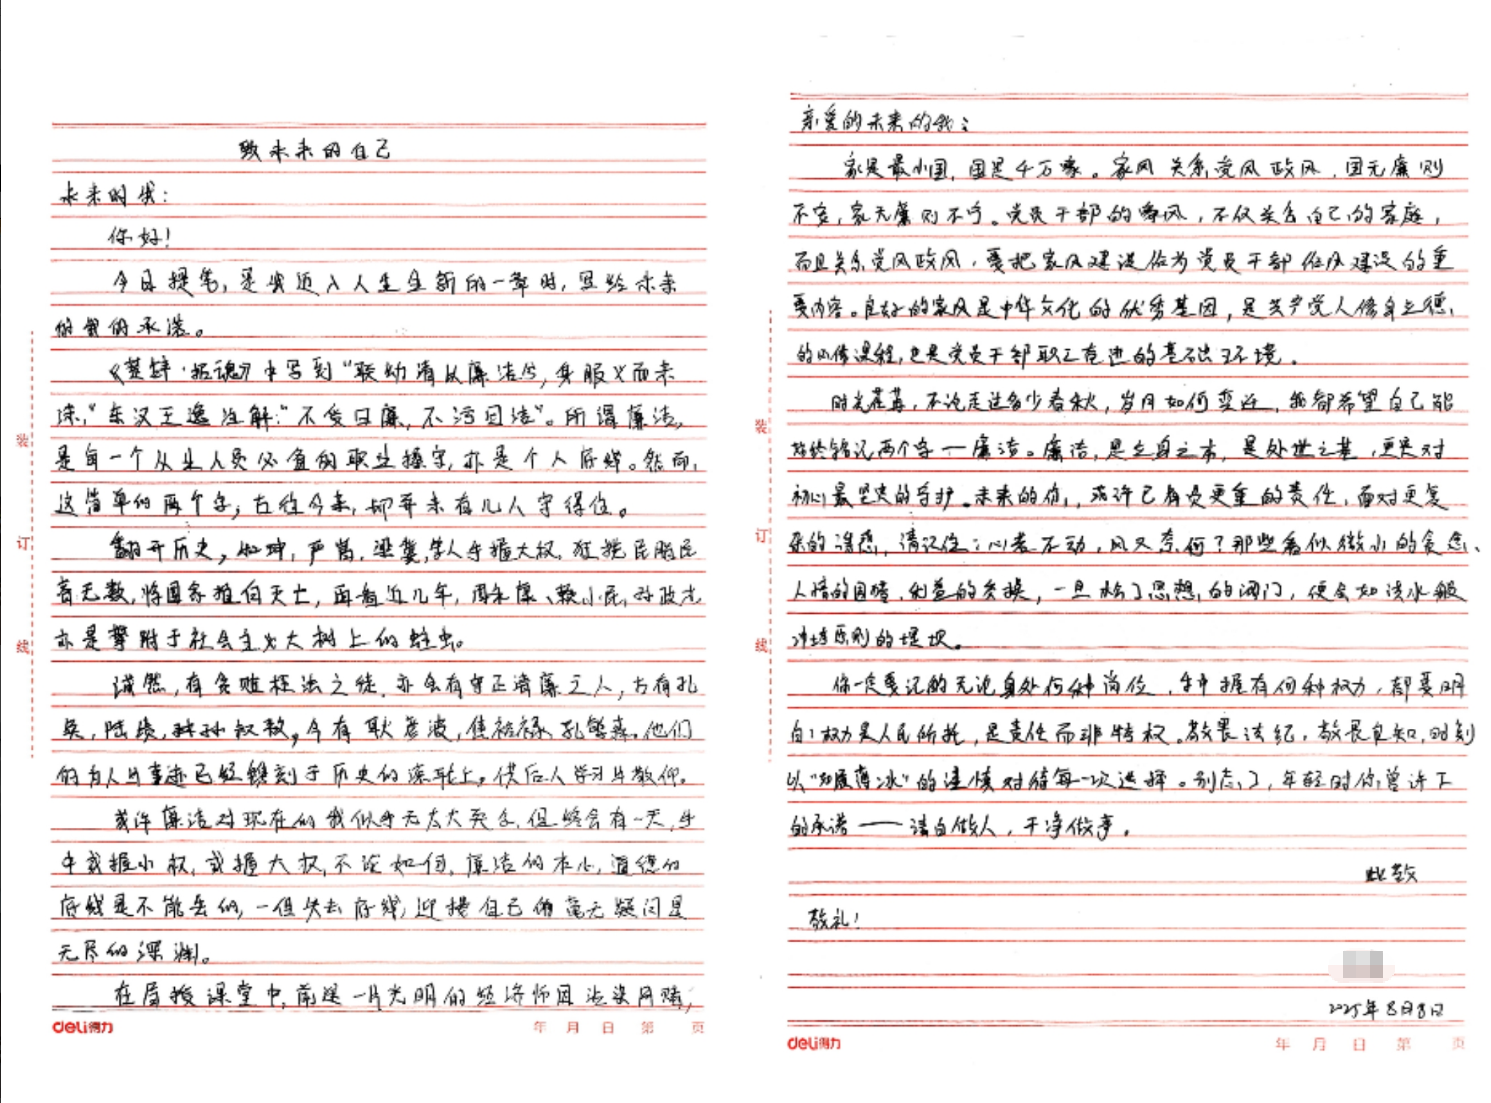 致未来的自己
未来的我：
你好！
今日提笔，是我迈入人生全新的一年时，写给未来
的我的承诺。
《楚辞·招魂》中写到“朕幼清以廉洁兮，身服义而未
沫，”东汉王逸注解：“不受曰廉，不污曰洁”。所谓廉洁，
是每一个从业人员必备的职业操守，亦是个人底线。然而，
这简单的两个字，古往今来，却并未有几人守得住。
翻开历史，和珅，严嵩，梁冀，等人手握大权，狂揽民脂民
膏无数，将国家推向灭亡，再看近几年，周永康、赖小民，孙政才
亦是攀附于社会主义大树上的蛀虫。
诚然，有贪赃枉法之徒，亦会有守正清廉之人，古有孔
奂，陆绩，孙叔敖，今有耿彦波，焦裕禄，孔繁森。他们
的为人与事迹已经镌刻于历史的演轧上。供后人学习与敬仰。
或许廉洁对现在的我似乎无太大关系，但终会有一天，手
中或握小权，或握大权，不论如何，廉洁的本心，道德的
底线是不能丢的，一但失去底线，迎接自己的毫无疑问是
无尽的深渊。
在授课堂中，前途一片光明的经济师因沾染网赌，
deli得力
年 月 日 第 页
装
订
线
亲爱的未来的我：
家是最小国，国是千万家。家风关系党风政风，国无廉则
不安，家无廉则不宁。党员干部的家风，不仅关系自己的家庭，
而且关系党风政风，要把家风建设作为党员干部作风建设的重
要内容。良好的家风是中华文化的优秀基因，是共产党人修身立德，
的必修课程，也是党员干部职工奋进的基础环境。
时光荏苒，不论走过多少春秋，岁月如何变迁，我都希望自己能
始终铭记两个字——廉洁。廉洁，是立身之本，是处世之基，更是对
初心最坚定的守护。未来的你，或许已肩负更重的责任，面对更复
杂的诱惑，请记住：心若不动，风又奈何？那些看似微小的贪念、
人情的困扰，利益的交换，一旦松了思想的闸门，便会如洪水般
冲垮原则的堤坝。
你一定要记的无论身处何种岗位，手中握有何种权力，都要明
白：权力是人民所托，是责任而非特权。敬畏法纪，敬畏良知，时刻
以“如履薄冰”的谨慎对待每一次选择。别忘了，年轻时你曾许下
的承诺——清白做人，干净做事。
此致
敬礼！
2025年8月8日
deli得力
年 月 日 第 页
装
订
线